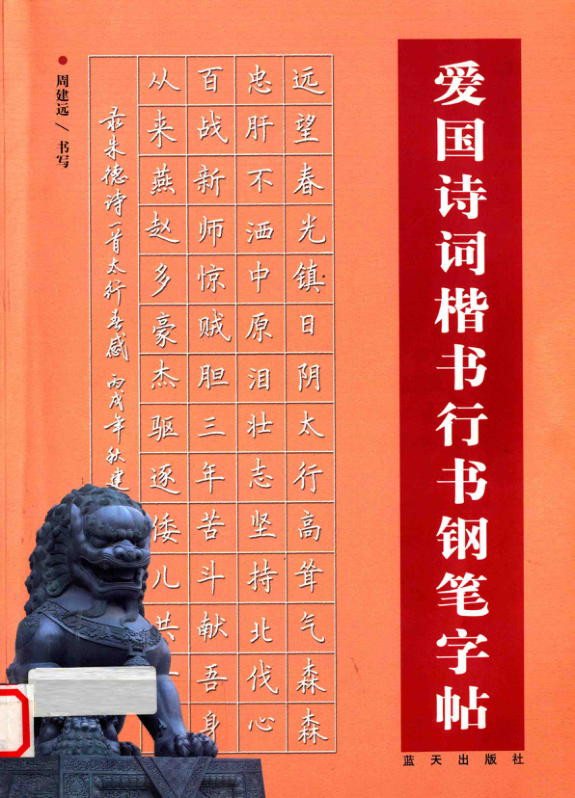 爱国诗词楷书行书钢笔字帖
远望春光镇日阴太行高耸气森森
忠肝不洒中原泪壮志坚持北伐心
百战新师惊贼胆三年苦斗献吾身
从来燕赵多豪杰驱逐倭儿共
录朱德诗一首太行春感 丙戌年秋建
周建远/书写
蓝天出版社